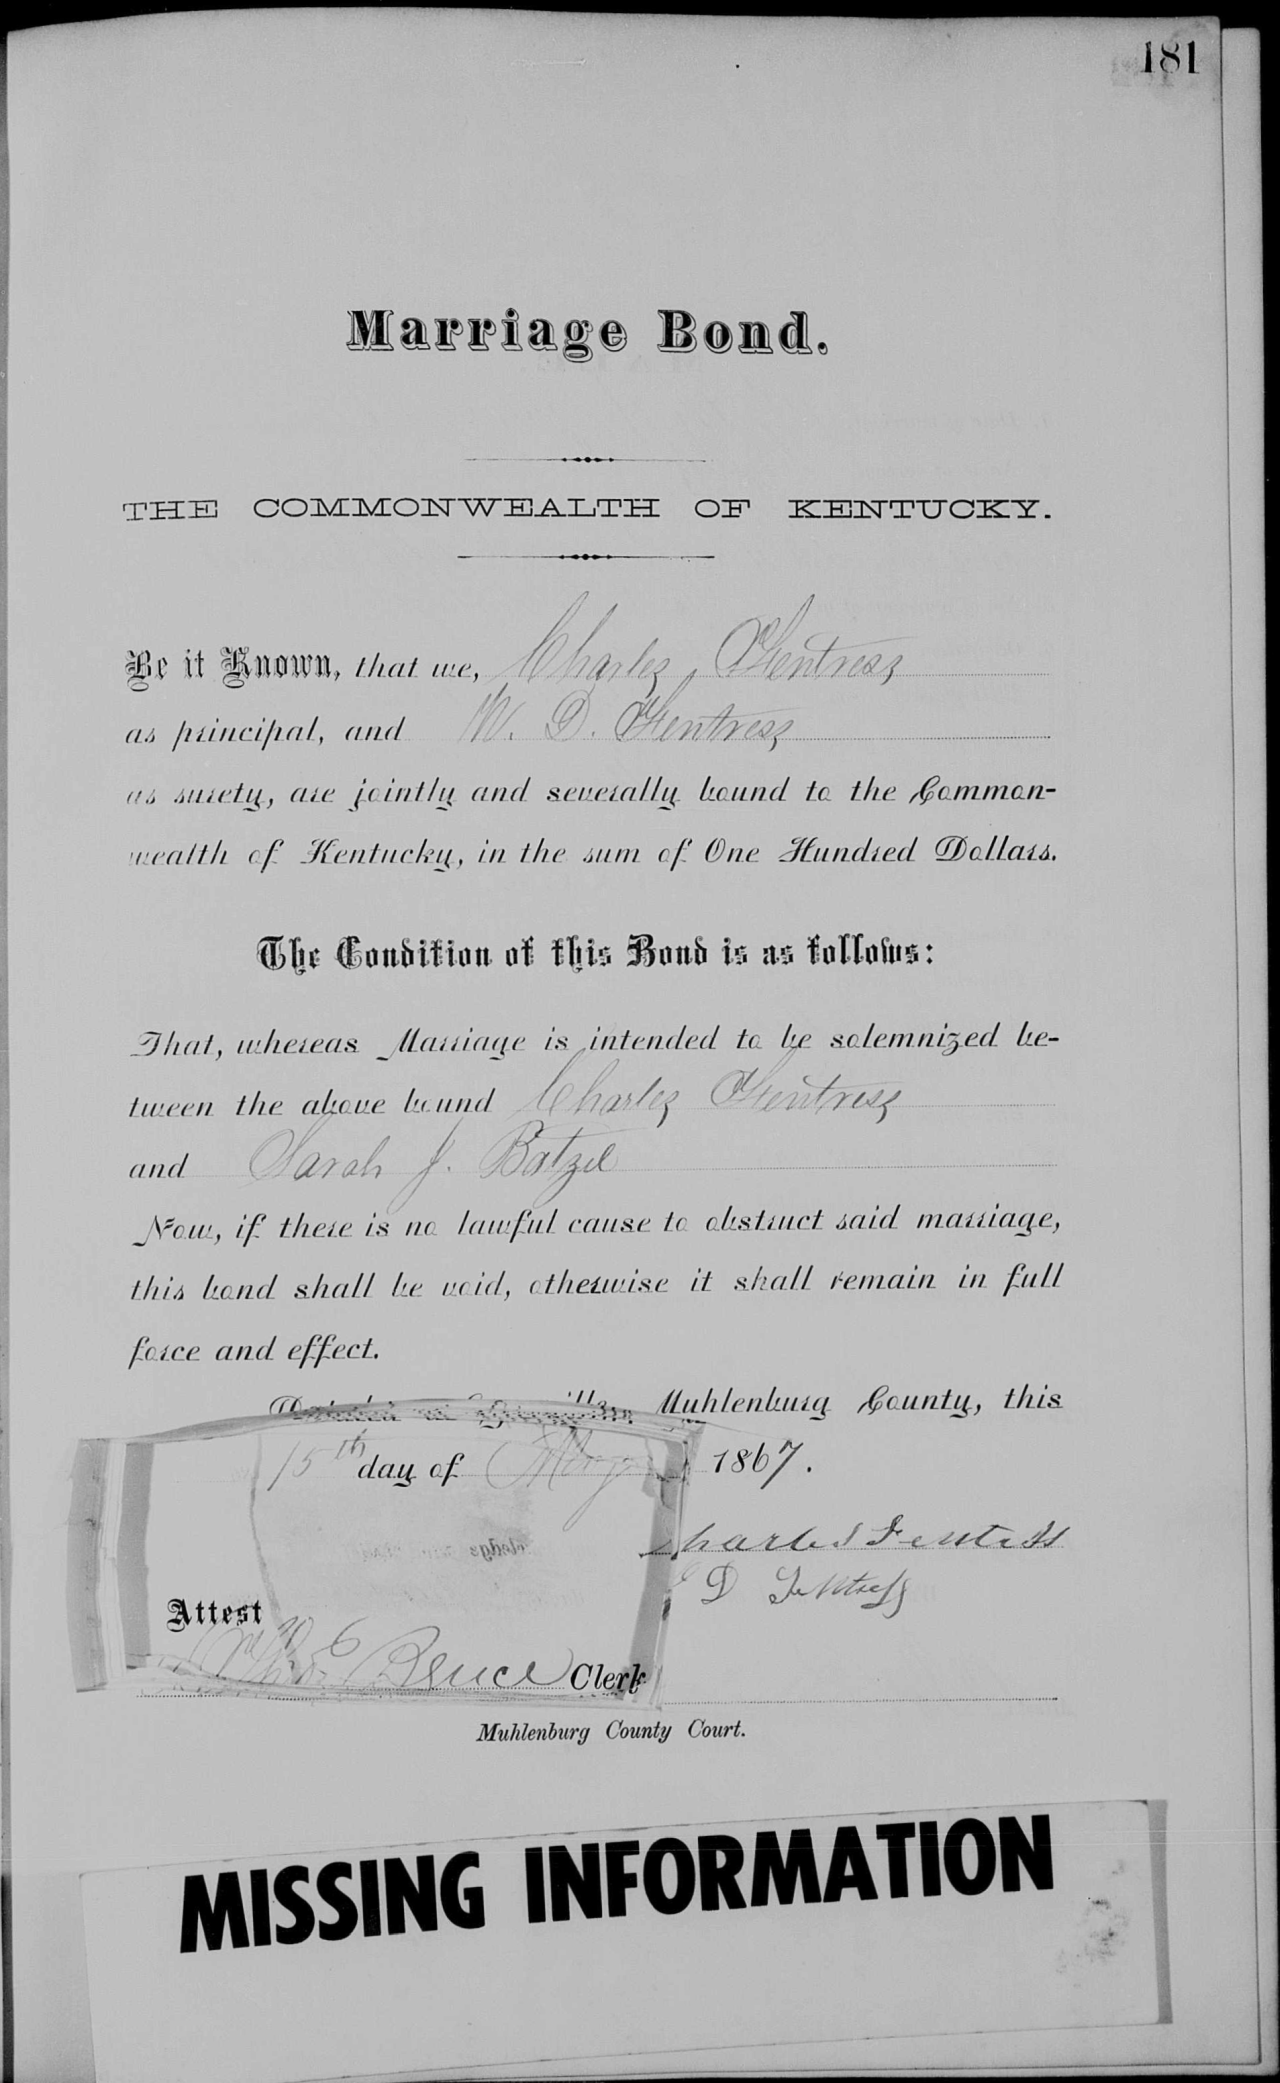 181
Marriage Bond.
THE COMMONWEALTH OF KENTUCKY.
Be it Known, that we, Charles Fentress
as principal, and W. D. Fentress
as surety, are jointly and severally bound to the Common-
wealth of Kentucky, in the sum of One Hundred Dollars.
The Condition of this Bond is as follows:
That, whereas Marriage is intended to be solemnized be-
tween the above bound Charles Fentress
and Sarah J. Batzel
Now, if there is no lawful cause to obstruct said marriage,
this bond shall be void, otherwise it shall remain in full
force and effect.
Muhlenburg County, this
15th day of May 1867.
Charles Fentress
D Fentress
Attest
Bruce Clerk
Muhlenburg County Court.
MISSING INFORMATION